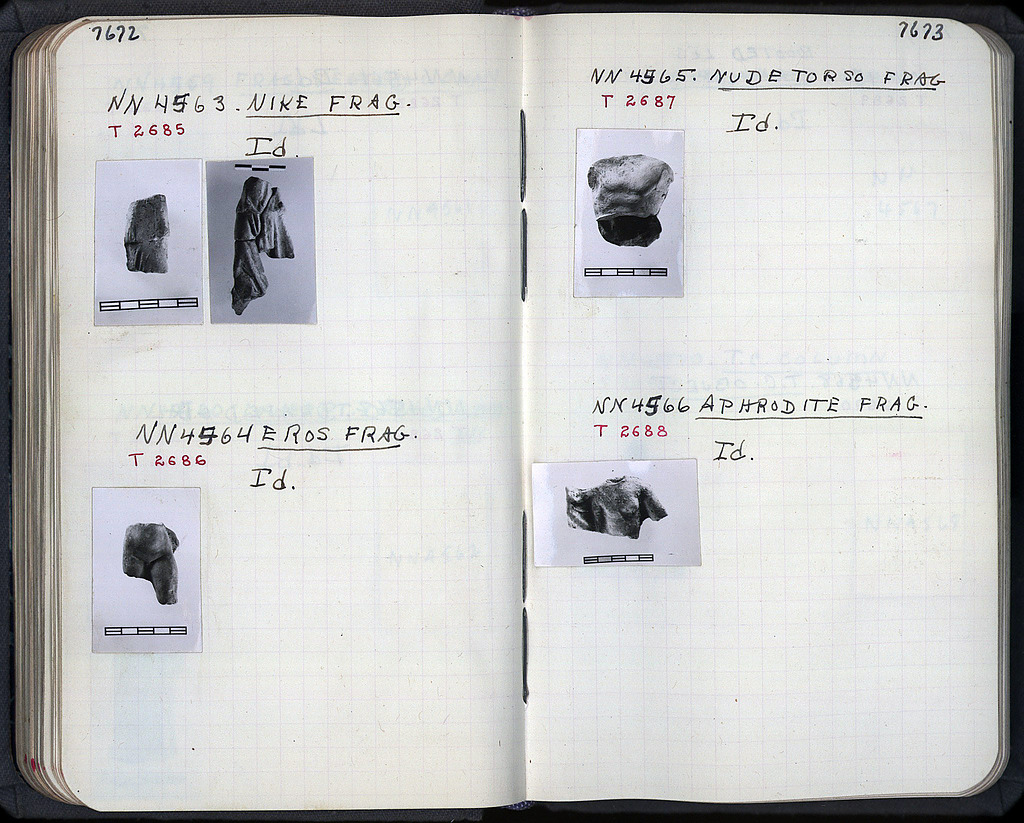 7672
NN 4563. NIKE FRAG.
T 2685
Id.
NN 4564 EROS FRAG.
T 2686
Id.
7673
NN 4565. NUDE TORSO FRAG
T 2687
Id.
NN 4566 APHRODITE FRAG.
T 2688
Id.